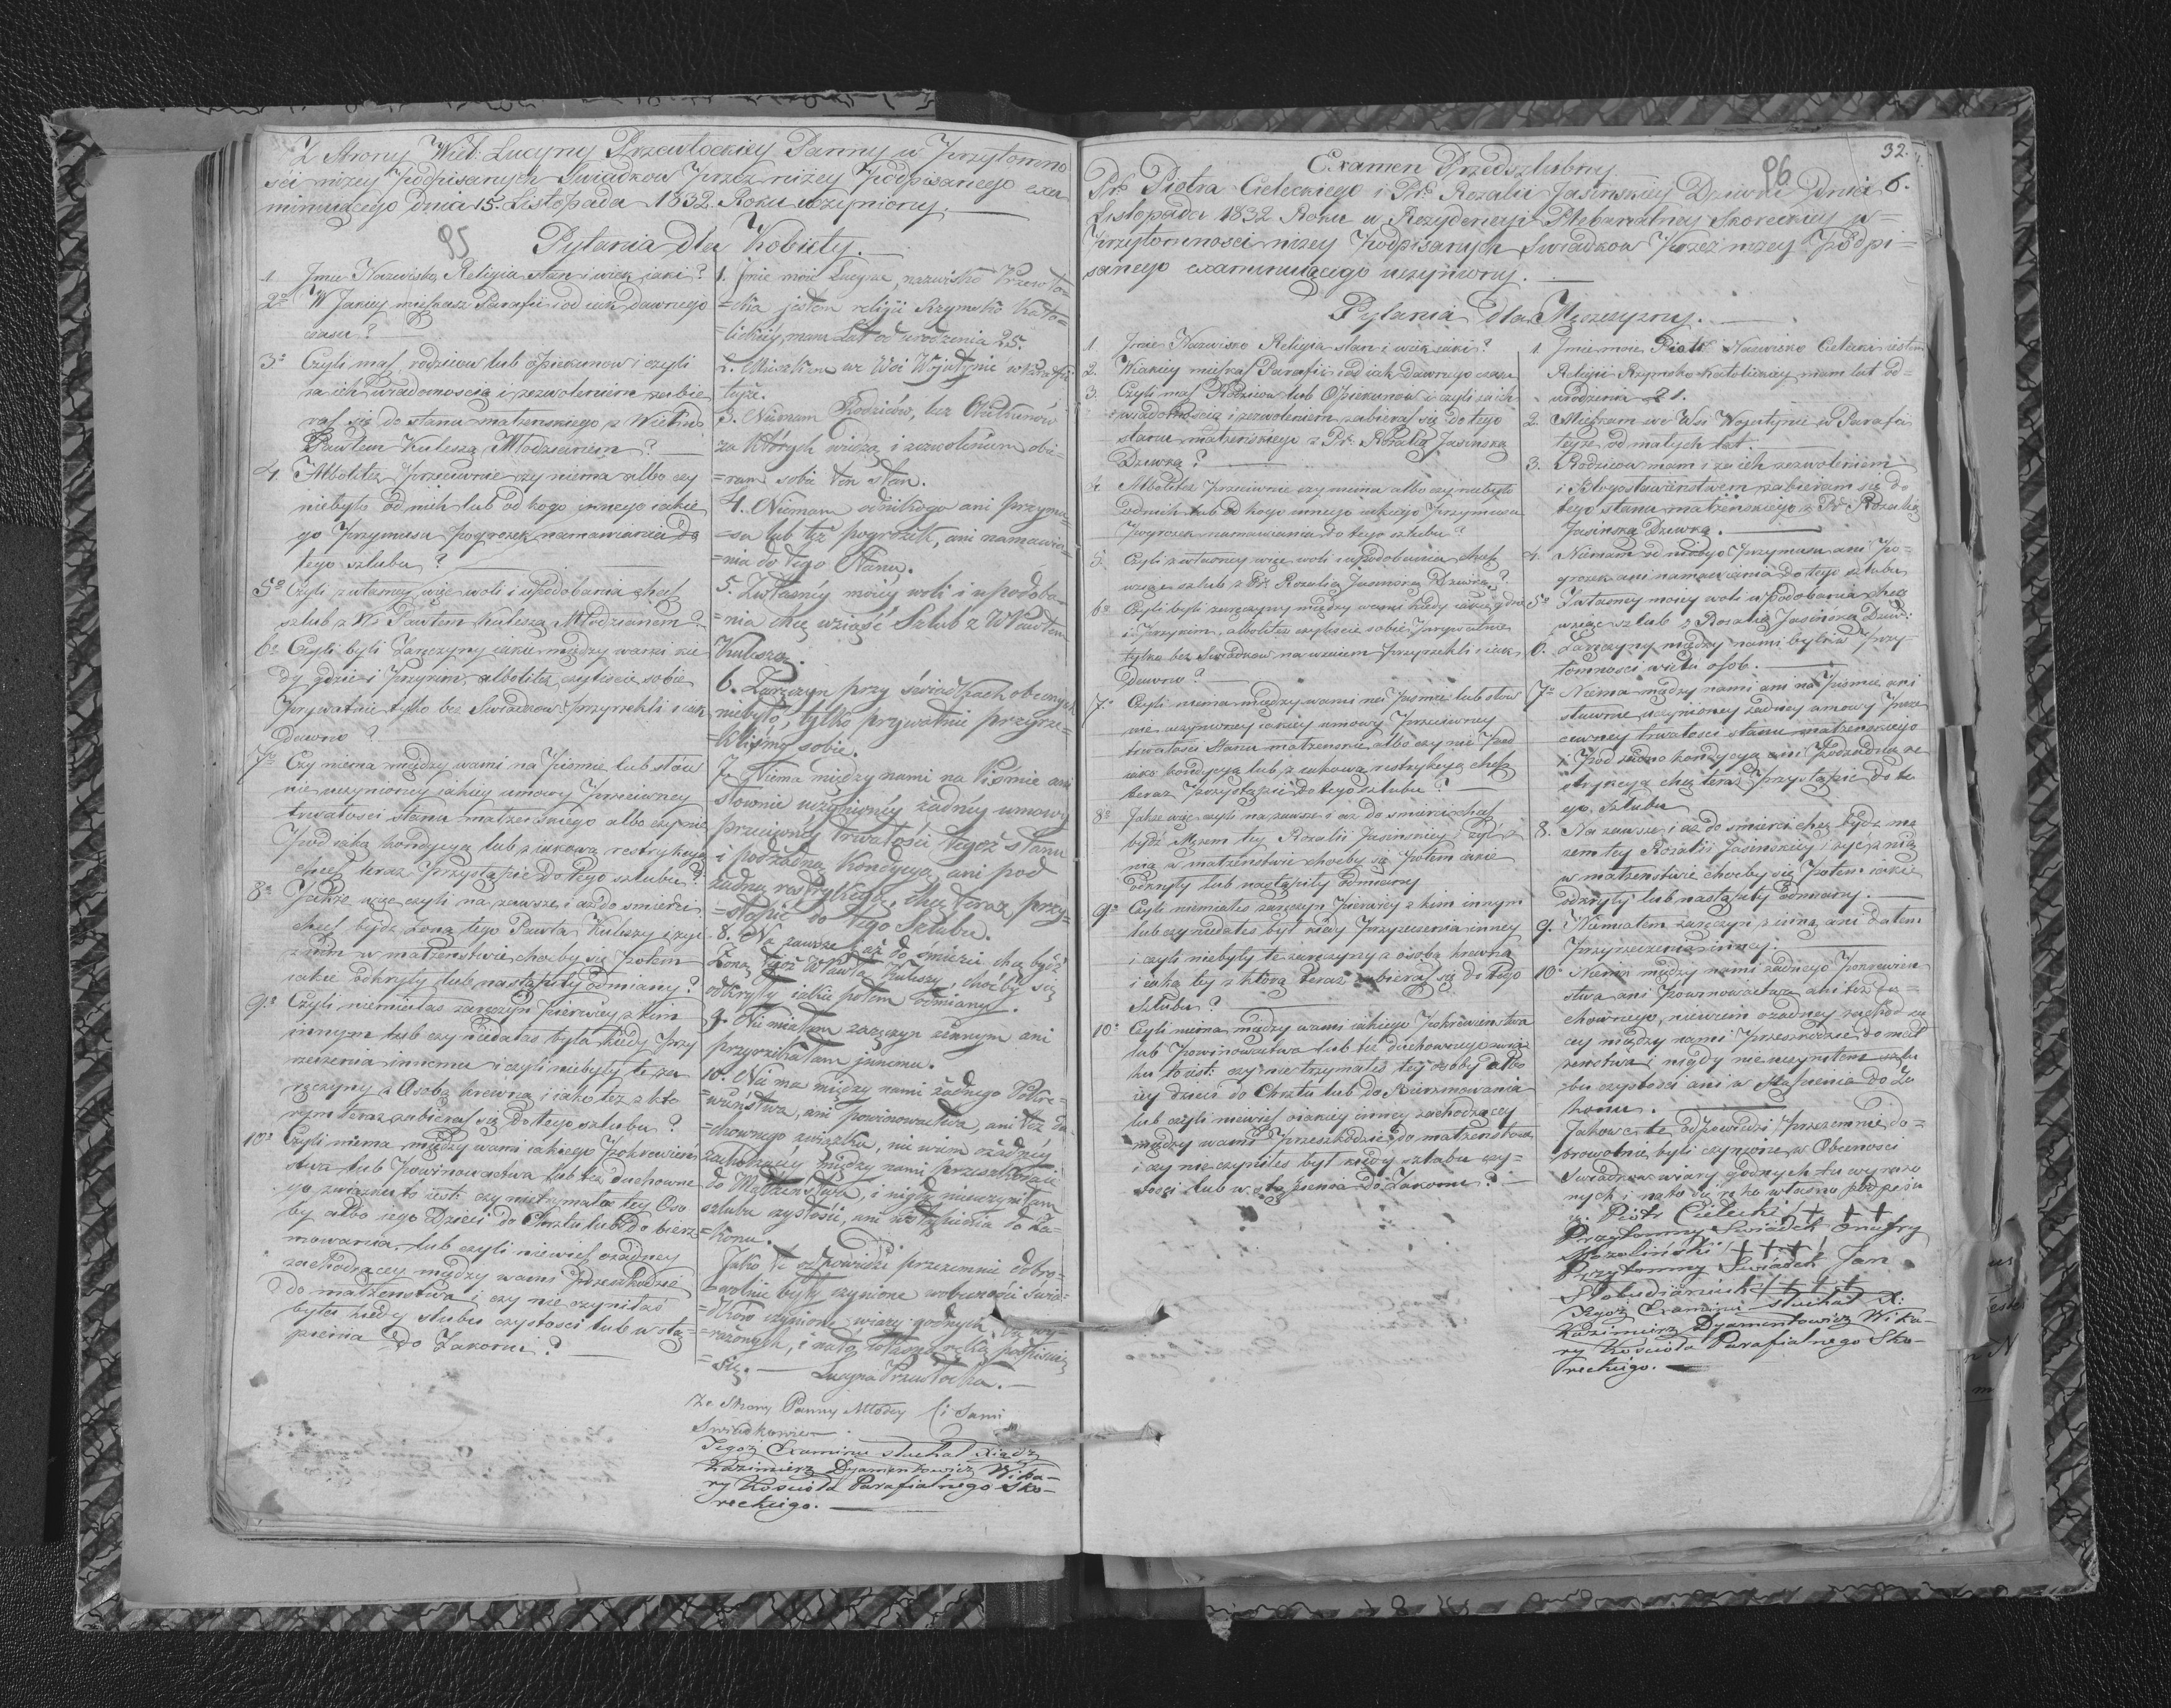 Z Strony Wiel: Lucyny Przewłockiey Panny w Przytomno
ści niżey Podpisanych Swiadkow Przez niżey Podpisanego exa
minuiącego dnia 15. Listopada 1832. Roku uczyniony. —
95
Pytania dla Kobiety. —
1. Jmie Nazwisko Religia stan i wiek iaki?
2o W Jakiey mieszkasz Parafii i od iak dawnego
czasu?
3o Czyli masz rodzicow lub opiekunow i czyli
za ich wiadomoscią i zezwoleniem zabie
rasz się do stanu małzenskiego z Wielm:
Pawłem Kuleszą Młodzianem? —
4. Albolitez Przeciwnie czy niema albo czy
niebyło od nich lub od kogo innego iakie
go Przymusu Pogrozek namawiania do
tego szlubu? —
5o Czyli z własney więc woli i upodobania chcesz
szlub z W: Pawłem Kuleszą Młodzianem?
6o Czyli byli Zaręczyny iakie między wami kie
dy gdzie i Przykim, albolitez czyliscie sobie
Prywatnie tylko bez Swiadkow Przyrzekli i iak
Dawno?
7o Czy niema między wami na Pismie lub słow
nie uczynioney iakiey umowy Przeciwney
trwałosci stanu małzenskiego albo czy nie
Pod iaką kondycyą lub z iakową restrykcyą
chcesz teraz Przystąpic do tego szlubu?
8o Jakże więc czyli na zawsze i aż do smierci
chcesz bydz Zoną tego Pawła Kuleszy i żyć
z nim w małzenstwie chociby się Potem
iakie odkryły lub nastąpiły odmiany?
9o Czyli niemiałas zaręczyn Pierwiey z kim
innym lub czy niedałas była kiedy Przy
rzeczenia innemu i czyli niebyły te za
ręczyny z Osobą krewną i iako też z kto
rym teraz zabierasz się do tego szlubu?
10o Czyli niema między wami iakiego Pokrewień
stwa lub Powinowactwa lub też duchowne
go związku to iest: czy nietrzymała tey Oso
by albo iego Dzieci do Chrztu lub do bierz
mowania. lub czyli niewiesz o żadney
zachodzącey między wami Przeszkodzie
do małzenstwa i czy nie czyniłaś
była kiedy slubu czystosci lub wstą
pienia Do Zakonu? —
1. Jmie moie Lucyna, nazwisko Przewło=
=cka jestem religii Rzymsko Kato=
=lickiéy, mam Lat od urodzenia 25.
2. Mieszkam we Wsi Wojutynie w Parafii
teyże.
3. Niemam Rodziców, lecz Opiekunów
za których wiedzą i zezwoleniem obie=
=ram sobie ten stan.
4. Niemam od nikogo ani przymu=
=su lub téż pogrózek, ani namawia=
=nia do tego Stanu.
5. Zwłasnéy moiéy woli i upodoba=
=nia chcę wziąść Szlub z W Pawłem
Kuleszą.
6. Zaręczyn przy świadkach obecnych
niebyło, tylko prywatnie przyrze=
=kliśmy sobie.
7. Niema między nami na Piśmie ani
słownie uczynionéy żadnéy umowy
przeciwnéy trwałości tegoż stanu
i pod żadną Kondycyą ani pod
żadną restrykcyą, chcę teraz przy=
=stąpić do tego Szlubu.
8. Na zawsze i aż do śmierci chcę bydź
Żoną tegoż W Pawła Kuleszy, chociby się
odkryły iakie potem odmiany.
9. Nie miałam zaręczyn z innym ani
przyrzekałam jnnemu.
10. Nie ma między nami żadnego Pokre=
=wieństwa, ani powinowactwa, ani też du=
=chownego związku, nie wiem o żadnéy
zachodzącéy między nami przeszkodzie
do Małżeństwa, i nigdy nieczyniłam
szlubu czystości, ani wstąpienia do Za=
=konu.
Jako te odpowiedzi przezemnie dobro=
=wolnie były czynione w obecności świa=
=dków czynione wiary godnych, tu wy=
=rażonych, i na to własną ręką podpisuię
=się. — Lucyna Przewłocka. —
Ze Strony Panny Młodey ci sami
Swiadkowie
Tegoż Examinu słuchał Xiądz
Kazimierz Dyamentowicz Wika=
ry Kościoła Parafialnego Sko=
reckiego. —
32.
96
Examen Przedszlubny
Pr: Piotra Cieleckiego i Pr: Rozalii Jasinskiey Dziewki Dnia 6.
Listopada 1832 Roku w Rezydencyi Plebanalney Skoreckiey w=
Przytomnosci niżey Podpisanych Swiadkow Przez niżey Podpi=
sanego examinuiącego uczyniony. —
Pytania dla Męzczyzny. —
1. Jmie Nazwisko Religia stan i wiek iaki?
2. W iakiey mieszkasz Parafii i od iak dawnego czasu
3. Czyli masz Rodzicow lub Opiekunow i czyli za ich
wiadomoscią i zezwoleniem zabierasz się do tego
stanu małzenskiego z Pr: Rozalią Jasinską
Dziewką? —
4. Albolitez Przeciwnie czy niema albo czy niebyło
od nich lub od kogo innego iakiego Przymusu
Pogrozek namawiania do tego szlubu?
5. Czyli z własney więc woli i upodobania chcesz
wziąsc szlub z Pr: Rozalią Jasinską Dziewką?
6o Czyli byli zaręczyny między wami kiedy iakie, gdzie
i Przykim, albolitez czyliscie sobie Prywatnie
tylko bez Swiadkow nawzaiem Przyrzekli i iak
Dawno? —
7o Czyli niema między wami na Pismie lub słow
nie uczynioney iakiey umowy Przeciwney
trwałosci Stanu małzenskie albo czy nie Pod
iako kondycyą lub z iakową restrykcyą chcesz
teraz Przystąpic do tego szlubu? —
8o Jakże więc czyli na zawsze i aż do smierci chcesz
bydź Mężem tey Rozalii Jasinskiey i żyć z
nią w małzenstwie chociby się Potem iakie
odkryły lub nastąpiły odmiany
9o Czyli niemiałes zaręczyn Pierwiey z kim innym
lub czy niedałes był kiedy Przyrzeczenia inney
i czyli niebyły te zaręczyny z osobą krewną
i iaką tey z ktorą teraz zabierasz się do tego
Szlubu?
10o Czyli niema między wami iakiego Pokrewienstwa
lub Powinowactwa lub też duchownego związ
ku to iest: czy nie trzymałes tey osoby albo
iey dzieci do Chrztu lub do Bierzmowania
lub czyli niewiesz o iakiey inney zachodzącey
między wami Przeszkodzie do małzenstwa
i czy nie czyniłes był kiedy szlubu czy=
stosci lub wstąpienia do Zakonu? —
1. Jmie moie Piotr Nazwisko Cielecki iestem
Religii Rzymsko-Katolickiey mam lat od=
urodzenia 21.
2. Mieszkam we Wsi Wojutynie w Parafii
teyże od małych lat
3. Rodzicow mam i za ich zezwoleniem
i Błogosławienstwem zabieram się do
tego stanu małzenskiego z Pr: Rozalią
Jasinską Dziewką. —
4. Niemam od nikogo Przymusu ani Po=
grozek ani namawiania do tego szlubu
5o Z własney moiey woli i upodobania chcę
wziąsc szlub z Rozalią Jasińską Dziew:
6. Zaręczyny między nami byli w Przy=
tomnosci wielu osob. —
7o Niema między nami ani na Pismie ani
słownie uczynioney żadney umowy Prze
ciwney trwałosci stanu małzenskiego
i Pod żadno kondycyą ani Podżadną re
strykcyą chcę teraz Przystąpic do te
go. Szlubu
8. Na zawsze i aż do smierci chcę bydz mę
zem tey Rozalii Jasinskiey i żyć z nią
w małzenstwie chociby się Potem iakie
odkryły lub nastąpiły odmiany. —
9. Niemiałem zaręczyn z inną ani dałem
Przyrzeczenia inney. —
10o Niema między nami żadnego Pokrewien
stwa ani Powinowactwa ani też du=
chownego, niewiem o żadney zachodzą
cey między nami Przeszkodzie do mał
zenstwa i nigdy nie czyniłem szlu
bu czystości ani wstąpienia do Za
konu. —
Jakowe te odpowiedzi Przezemnie do=
browolnie byli czynione w Obecnosci
Swiadkow wiary godnych tu wyrażo
nych i na to się ręko własno podpisu
ię. Piotr Cielecki + + +
Przytomny Swiadek Onufry
+ + +
Przytomny Swiadek Jan
+ + +
Tegoż Examinu słuchał X:
Kazimierz Dyamentowicz Wika=
ry Kościoła Parafialnego Sko=
reckiego. —